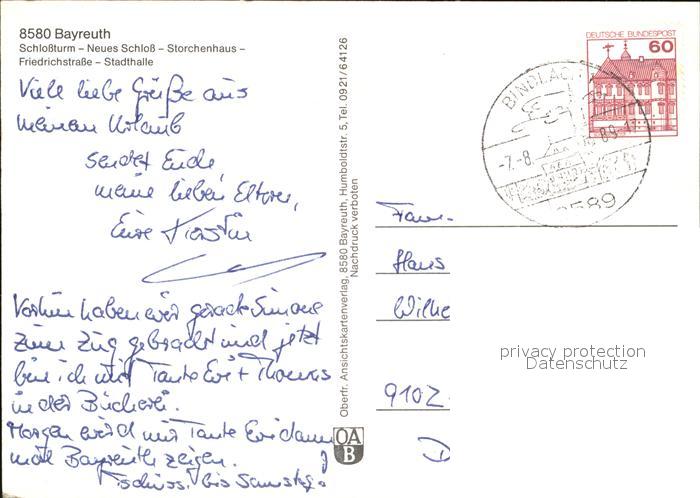 8580 Bayreuth
Schloßturm – Neues Schloß – Storchenhaus –
Friedrichstraße – Stadthalle
Viele liebe Grüße aus
meinem Urlaub
sendet Euch,
meine lieben Eltern,
Eure Kerstin
Vorhin haben wir gerade Simone
zum Zug gebracht und jetzt
bin ich mit Tante Evi + Thomas
in der Bücherei.
Morgen wird mir Tante Evi dann
mal Bayreuth zeigen.
Tschüss. bis Samstag.
Oberfr. Ansichtskartenverlag, 8580 Bayreuth, Humboldtstr. 5, Tel. 0921/64126
Nachdruck verboten
OA
B
DEUTSCHE BUNDESPOST
60
BINDLACH
-7.-8.
89-17
8589
Fam.
Hans
Wilhe
9102
D
privacy protection
Datenschutz